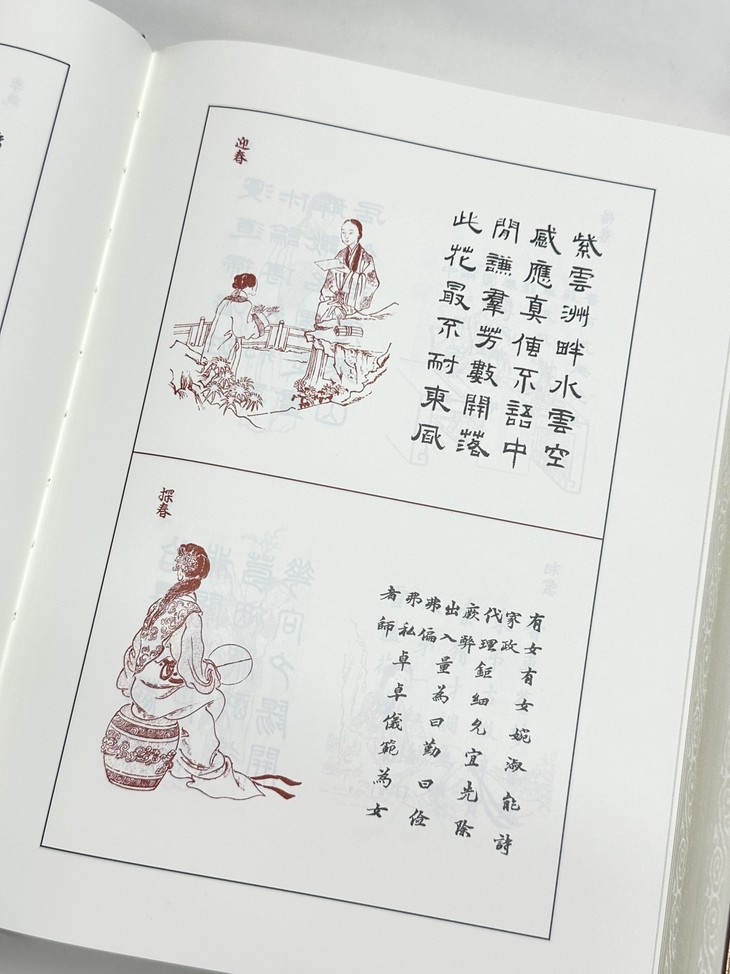 迎春
紫雲洲畔水雲空
感應真不語中
閒謙羣芳數開落
此花最不耐東風
探春
有女有女婉淑能詩
家政代理鉅細允宜先除
厥弊出入量為曰勤曰儉
弗偏弗私卓卓儀範為女
者師